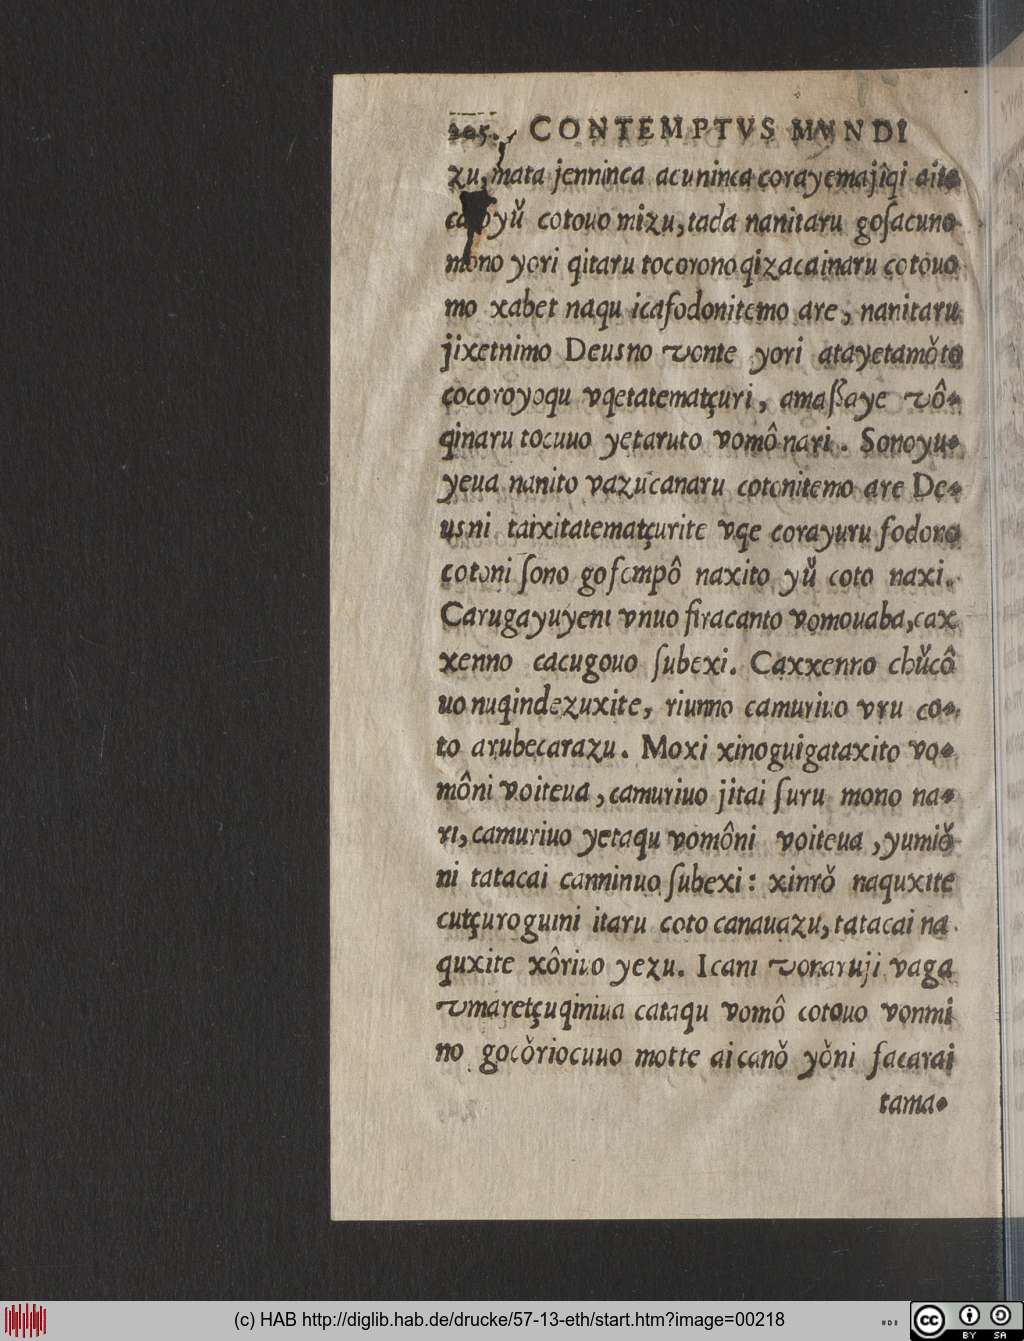 205. CONTEMPTVS MVNDI
zu, mata jenninca acuninca corayemajiqi aite
yŭ cotouo mizu, tada nanitaru goſacuno
mono yori qitaru tocorono qizacainaru cotouo
mo xabet naqu icafodonitemo are, nanitaru
jixetnimo Deusno vonte yori atayetamŏto
cocoroyoqu vqetatematçuri, amaſsaye vô-
qinaru tocuuo yetaruto vomô nari. Sonoyu-
yeua nanito vazucanaru cotonitemo are De-
usni taixitatematçurite vqe corayuru fodono
cotoni ſono goſempô naxito yŭ coto naxi.
Carugayuyeni vnuo firacanto vomouaba, cax
xenno cacugouo ſubexi. Caxxenno chŭcô
uo nuqindezuxite, riunno camuriuo vru co-
to arubecarazu. Moxi xinoguigataxito vo-
môni voiteua, camuriuo jitai ſuru mono na-
ri, camuriuo yetaqu vomôni voiteua, yumiŏ
ni tatacai canninuo ſubexi: xinrŏ naquxite
cutçuroguini itaru coto canauazu, tatacai na
quxite xôriuo yezu. Icani vonaruji vaga
vmaretçuqiniua cataqu vomô cotouo vonmi
no gocŏriocuuo motte ai canŏ yŏni facarai
tama-
(c) HAB http://diglib.hab.de/drucke/57-13-eth/start.htm?image=00218
cc BY SA